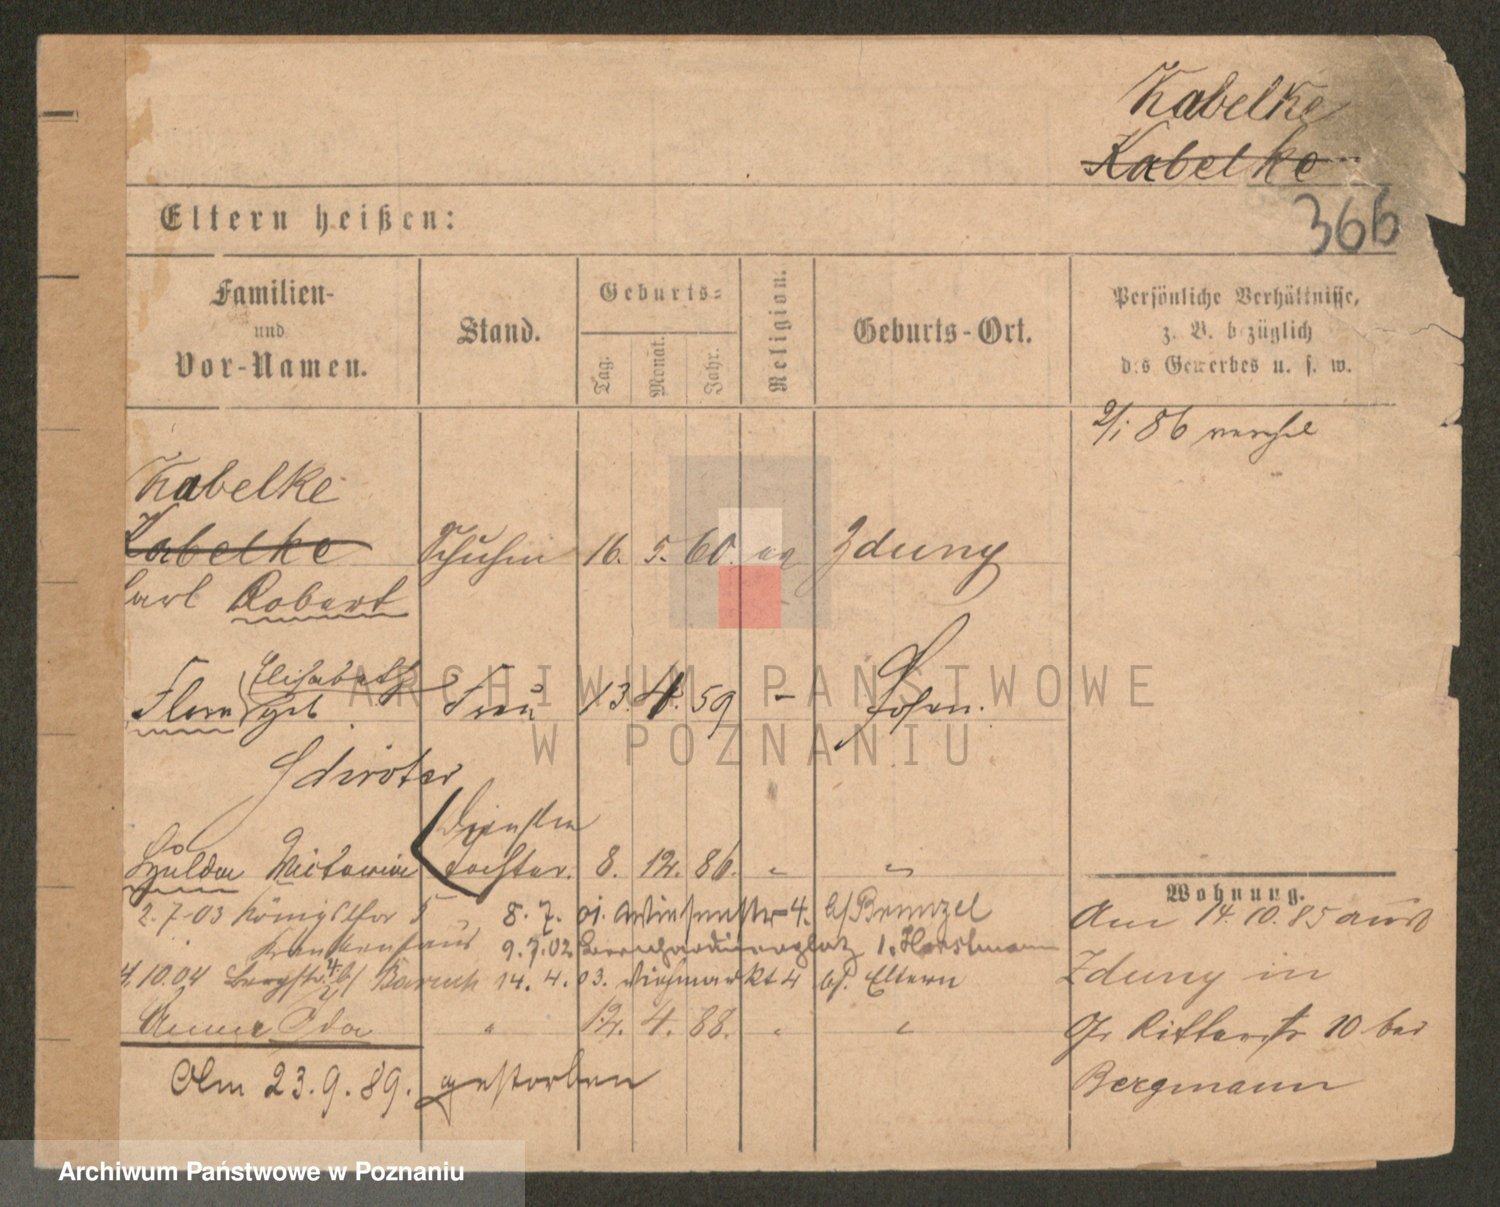 Kabelke
Kabelke
366
Eltern heißen:
Familien-
und
Vor-Namen.
Stand.
Geburts-
Tag.
Monat.
Jahr.
Religion.
Geburts-Ort.
Persönliche Verhältnisse,
z. B. bezüglich
des Gewerbes u. s. w.
2/1 86
Kabelke
Kabelke 16. 5. 60. Zduny
Carl Robert
Elisabeth
Flora geb Frau 13. 4. 59 - Posen.
Schröter
Hulda Victoria Tochter. 8. 12. 86. " "
Wohnung.
2.7.03 Königsthor 5 8. 7. 01. Wiesenstr 4. b/ Brenzel
Krankenhaus 9.7.02 Bernhardinerplatz 1. Horstmann
4.10.04 Bergstr. b/ Baruch 14. 4. 03. Viehmarkt 4 b/. Eltern
Anna Ida " 12. 4. 88. " "
Am 23.9.89. gestorben
Am 14.10.85 aus
Zduny in
Gr Ritterstr 10 bei
Bergmann
ARCHIWUM PAŃSTWOWE
W POZNANIU
Archiwum Państwowe w Poznaniu